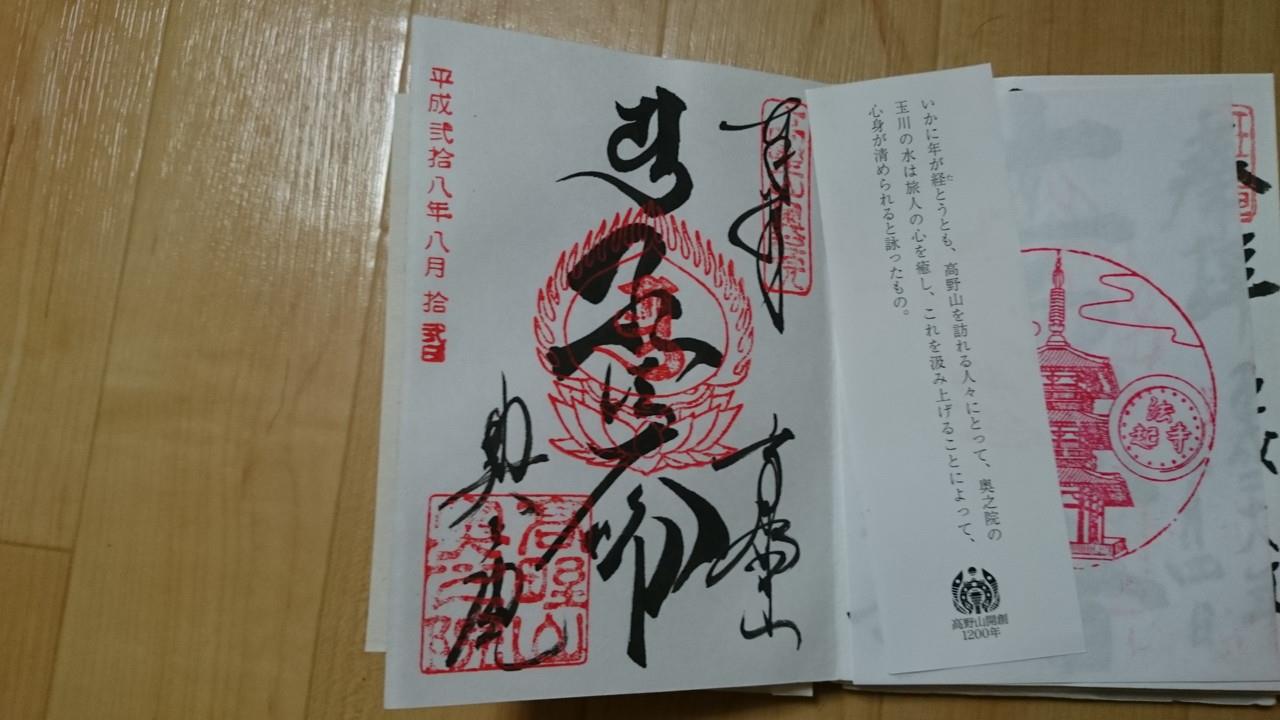 平成弐拾八年八月拾弐日
奉拝
高野山
奥之院
高野山奥之院
いかに年が経とうとも、高野山を訪れる人々にとって、奥之院の
た
玉川の水は旅人の心を癒し、これを汲み上げることによって、
心身が清められると詠ったもの。
高野山開創
1200年
法起寺